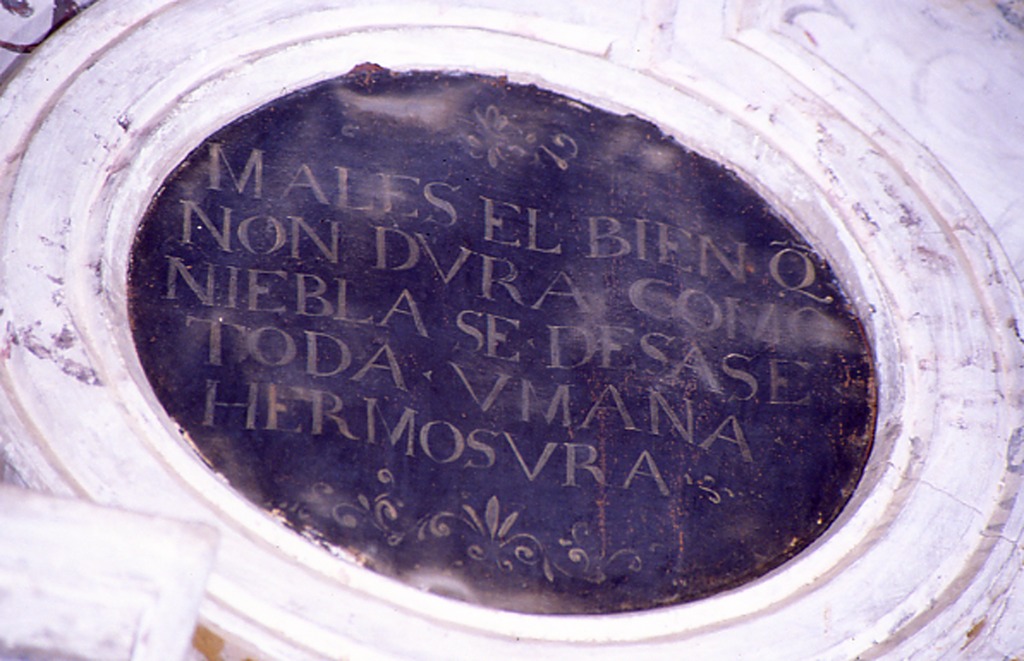 MALES EL BIEN Q̃
NON DVRA COMO
NIEBLA SE DESASE
TODA · VMANA
HERMOSVRA